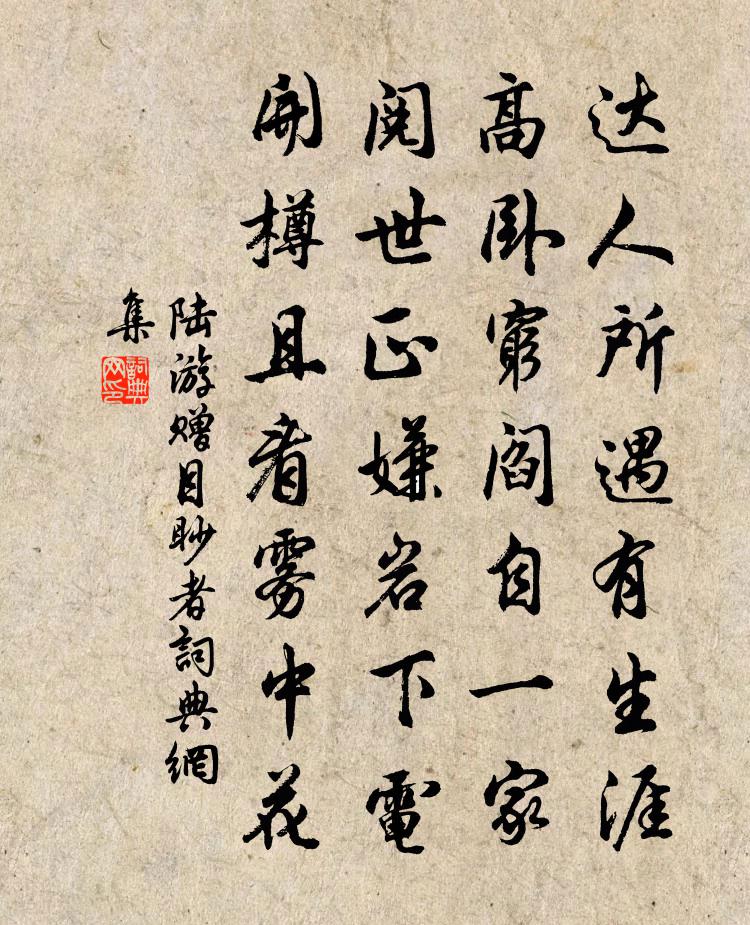 达人所遇有生涯
高卧穷阎自一家
阅世正嫌岩下電
開樽且看雾中花
陆游赠目眇者詞典網
集
詞典
网印